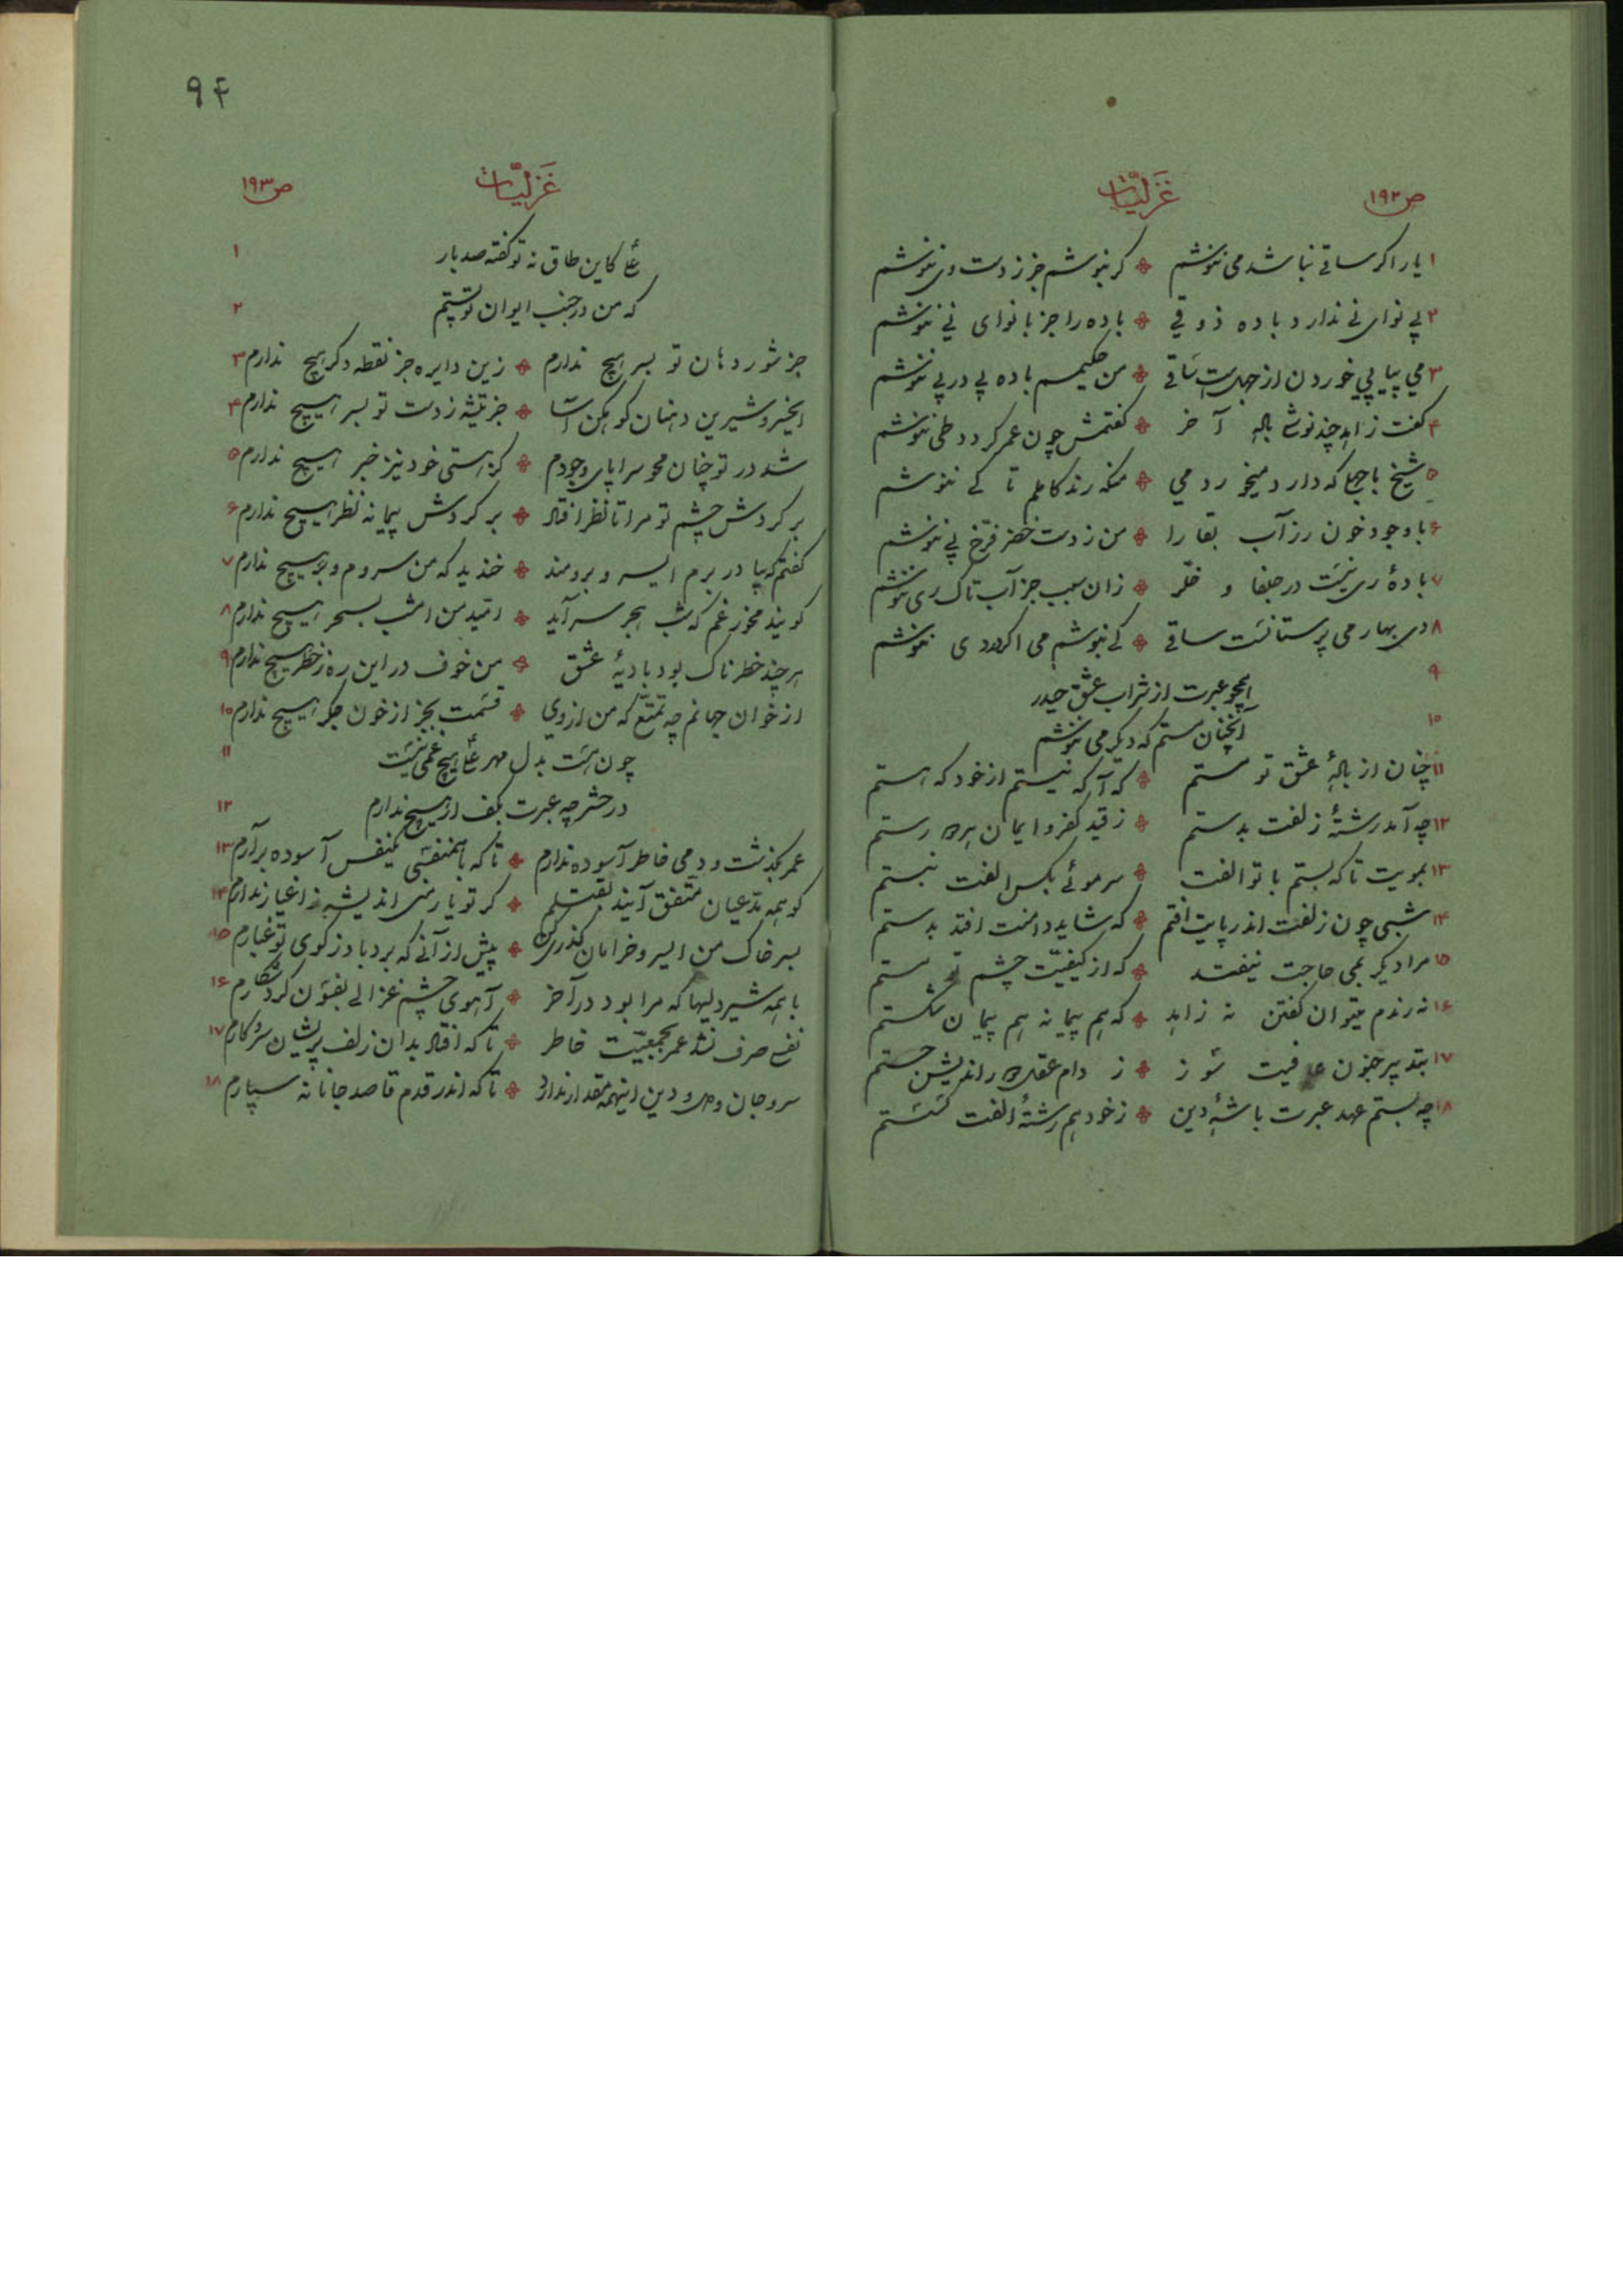 ص۱۹۲ غَزلیّات
۱ یار اگر ساقی نباشد می ننوشم ❖ گر بنوشم جز ز دست وی ننوشم
۲ بی نوای نی ندارد باده ذوقی ❖ باده را جز با نوای نی ننوشم
۳ می پیاپی خوردن از جهلست ساقی ❖ من حکیمم باده پی در پی ننوشم
۴ گفت زاهد چند نوشی باده آخر ❖ گفتمش چون عمر گردد طی ننوشم
۵ شیخ با جهلی که دارد میخورد می ❖ منکه رند کاملم تا کی ننوشم
۶ با وجود خون رز آب بقا را ❖ من ز دست خضر فرّخ پی ننوشم
۷ بادهٔ ری نیست در جلفا و خلّر ❖ زان سبب جز آب تاک ری ننوشم
۸ دی بهار می پرستانست ساقی ❖ کی بنوشم می اگر در دی ننوشم
۹ همچو عبرت از شراب عشق حیدر
۱۰ آنچنان مستم که دیگر می ننوشم
۱۱ چنان از بادهٔ عشق تو مستم ❖ که آگه نیستم از خود که هستم
۱۲ چه آمد رشتهٔ زلفت بدستم ❖ ز قید کفر و ایمان هر دو رستم
۱۳ بمویت تا که بستم با تو الفت ❖ سر موئی بکس الفت نبستم
۱۴ شبی چون زلفت اندر پایت افتم ❖ که شاید دامنت افتد بدستم
۱۵ مرا دیگر بمی حاجت نیفتد ❖ که از کیفیّت چشم تو مستم
۱۶ نه رندم میتوان گفتن نه زاهد ❖ که هم پیمانه هم پیمان شکستم
۱۷ بتدبیر جنون عافیت سوز ❖ ز دام عقل دوراندیش جستم
۱۸ چه بستم عهد عبرت با شه دین ❖ ز خود هم رشتهٔ الفت گسستم
۹۴
غَزلیّات ص۱۹۳
۱ علی کاین طاق نه تو گفته صد بار
۲ که من در جنب ایوان تو پستم
جز شور دهان تو بسر هیچ ندارم ❖ زین دایره جز نقطه دگر هیچ ندارم ۳
ایخسرو شیرین دهنان کوهکن آسا ❖ جز تیشه ز دست تو بسر هیچ ندارم ۴
شد در تو چنان محو سراپای وجودم ❖ کز هستی خود نیز خبر هیچ ندارم ۵
بر گردش چشم تو مرا تا نظر افتاد ❖ بر گردش پیمانه نظر هیچ ندارم ۶
گفتم که بیا در برم ای سرو برومند ❖ خندید که من سروم و بر هیچ ندارم ۷
گویند مخور غم که شب هجر سر آید ❖ امّید من امشب بسحر هیچ ندارم ۸
هر چند خطرناک بود بادیهٔ عشق ❖ من خوف در این ره ز خطر هیچ ندارم ۹
از خوان جهانم چه تمتّع که من از وی ❖ قسمت بجز از خون جگر هیچ ندارم ۱۰
۱۱ چون هست بدل مهر علی هیچ غمی نیست
۱۲ در حشر چه عبرت بکف ار هیچ ندارم
عمر بگذشت و دمی خاطر آسوده ندارم ❖ تا که با همنفسی یکنفس آسوده برآرم ۱۳
گو همه مدّعیان متّفق آیند بقتلم ❖ گر تو یار منی اندیشه ز اغیار ندارم ۱۴
بسر خاک من ای سرو خرامان گذری کن ❖ پیش از آنی که برد باد ز کوی تو غبارم ۱۵
با همه شیردلیها که مرا بود در آخر ❖ آهوی چشم غزالی بفسون کرد شکارم ۱۶
نفسی صرف نشد عمر بجمعیّت خاطر ❖ تا که افتاد بدان زلف پریشان سر و کارم ۱۷
سر و جان و دل و دین اینهمه مقدار ندارد ❖ تا که اندر قدم قاصد جانانه سپارم ۱۸